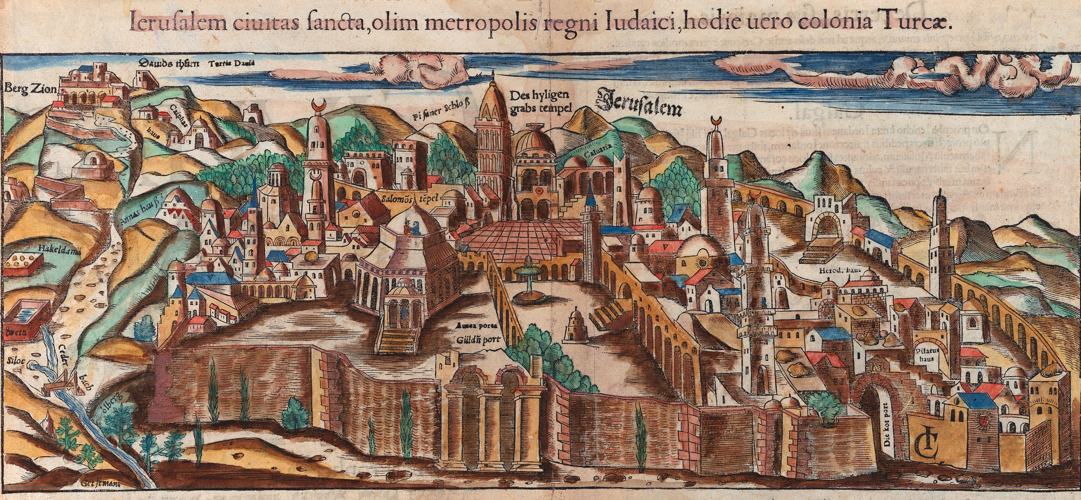 Ierusalem ciuitas sancta, olim metropolis regni Iudaici, hodie uero colonia Turcæ.
Dauids
Turris Dauid
Berg Zion
Caiphas
haus
Pisaner schloß
Des hyligen
grabs tempel
Jerusalem
Caluaria
Annas hauß
Salomōs tēpel
Hakeldama
Herod. haus
Aurea porta
Güldĩ port
Siloe
Pilatus
haus
Die kot port